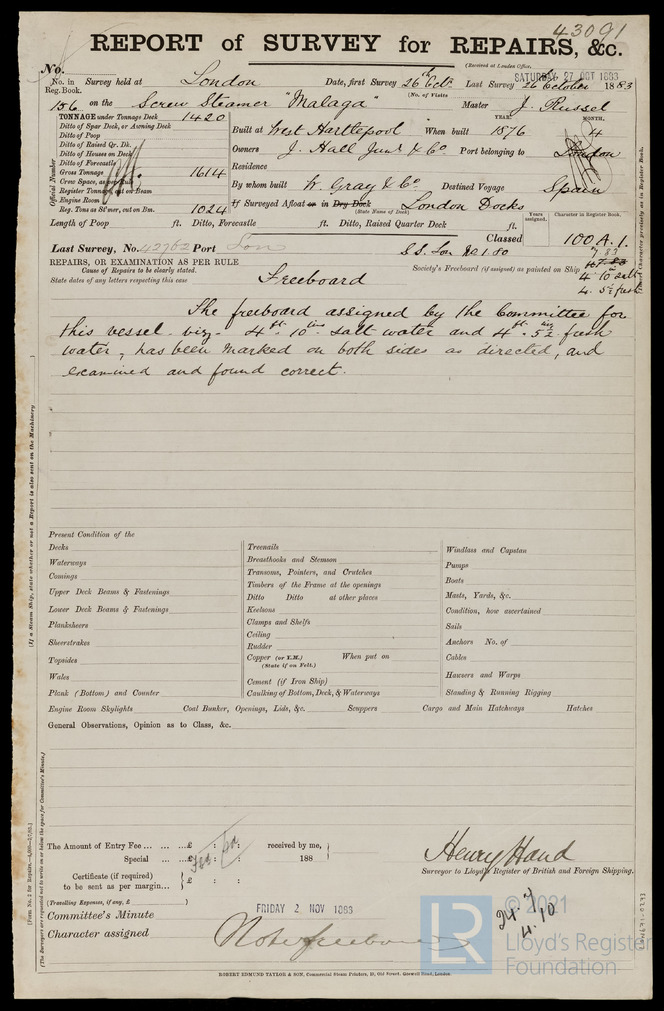 43091
REPORT of SURVEY for REPAIRS, &c.
(Received at London Office,
SATURDAY 27 OCT 1883
No.
No. in Reg. Book. Survey held at London Date, first Survey 26th Octr. Last Survey 26 October 1883
(No. of Visits
156 on the Screw Steamer "Malaga" Master J. Russel
TONNAGE under Tonnage Deck 1420
Ditto of Spar Deck, or Awning Deck
Ditto of Poop
Ditto of Raised Qr. Dk.
Ditto of Houses on Deck
Ditto of Forecastle
Gross Tonnage 1614
Crew Space, as per Rule
Register Tonnage cut on Beam
Engine Room
Reg. Tons as St'mer, cut on Bm. 1024
Official Number
YEAR. MONTH.
Built at West Hartlepool When built 1876 4
Owners J. Hall Junr & Co Port belonging to London
Residence
By whom built W. Gray & Co. Destined Voyage Spain
If Surveyed Afloat or in Dry Dock London Docks
(State Name of Dock)
Length of Poop ft. Ditto, Forecastle ft. Ditto, Raised Quarter Deck ft.
Years assigned.
Character in Register Book.
Classed 100 A. 1.
Last Survey, No. 42762 Port Lon
REPAIRS, OR EXAMINATION AS PER RULE
Cause of Repairs to be clearly stated.
State dates of any letters respecting this case
Society's Freeboard (if assigned) as painted on Ship
7 83
4 10 salt
4. 5½ fresh
Freeboard
The freeboard assigned by the Committee for
this vessel viz- 4 ft. 10 ins salt water and 4 ft. 5½ ins fresh
water, has been marked on both sides as directed, and
examined and found correct.
(If a Steam Ship, state whether or not a Report is also sent on the Machinery
Character precisely as in Register Book.
Present Condition of the
Decks
Waterways
Comings
Upper Deck Beams & Fastenings
Lower Deck Beams & Fastenings
Planksheers
Sheerstrakes
Topsides
Wales
Plank (Bottom) and Counter
Treenails
Breasthooks and Stemson
Transoms, Pointers, and Crutches
Timbers of the Frame at the openings
Ditto Ditto at other places
Keelsons
Clamps and Shelfs
Ceiling
Rudder
Copper (or Y.M.) When put on
(State if on Felt.)
Cement (if Iron Ship)
Caulking of Bottom, Deck, & Waterways
Windlass and Capstan
Pumps
Boats
Masts, Yards, &c.
Condition, how ascertained
Sails
Anchors No. of
Cables
Hawsers and Warps
Standing & Running Rigging
Engine Room Skylights Coal Bunker, Openings, Lids, &c. Scuppers Cargo and Main Hatchways Hatches
General Observations, Opinion as to Class, &c.
The Amount of Entry Fee ... ... ...£ : : received by me,
Special ... ...£ : : 188
Certificate (if required) to be sent as per margin... £ : :
(Travelling Expenses, if any, £ )
Henry Hand
Surveyor to Lloyd's Register of British and Foreign Shipping.
Committee's Minute FRIDAY 2 NOV 1883
Character assigned Note freeboard
24. 7
4. 10
LR
© 2021
Lloyd's Register
Foundation
ROBERT EDMUND TAYLOR & SON, Commercial Steam Printers, 19, Old Street, Goswell Road, London.